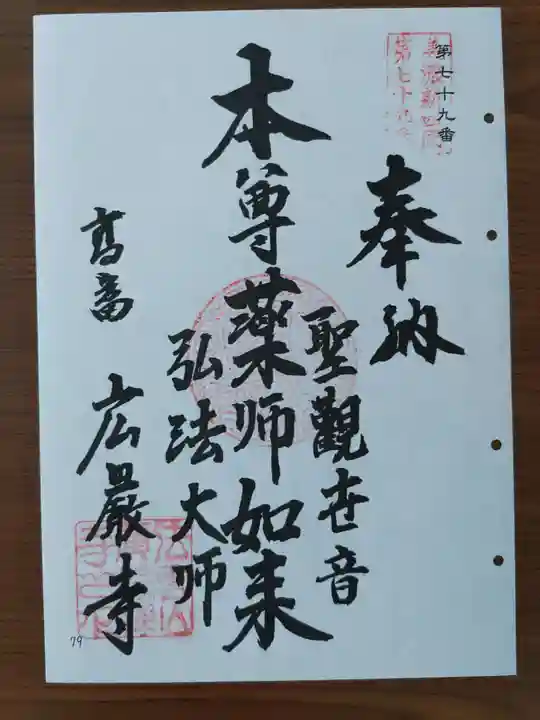 第七十九番
奉納
聖觀世音
本尊薬師如来
弘法大師
高富
広厳寺
79